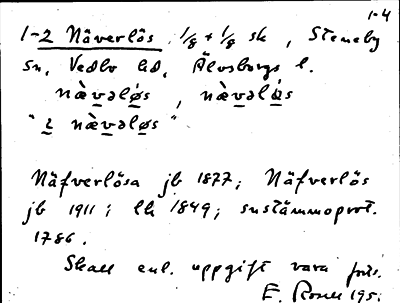 1-4
1-2 Näverlös 1/8 + 1/8 sk, Steneby
sn, Vedbo hd, Älvsborgs l.
nævəløs, nævəlùs
"i nævəløs"
Näfverlösa jb 1877; Näfverlös
jb 1911; lk 1849; sustämmoprot.
1786.
Skall enl. uppgift vara
E. Rosell 195